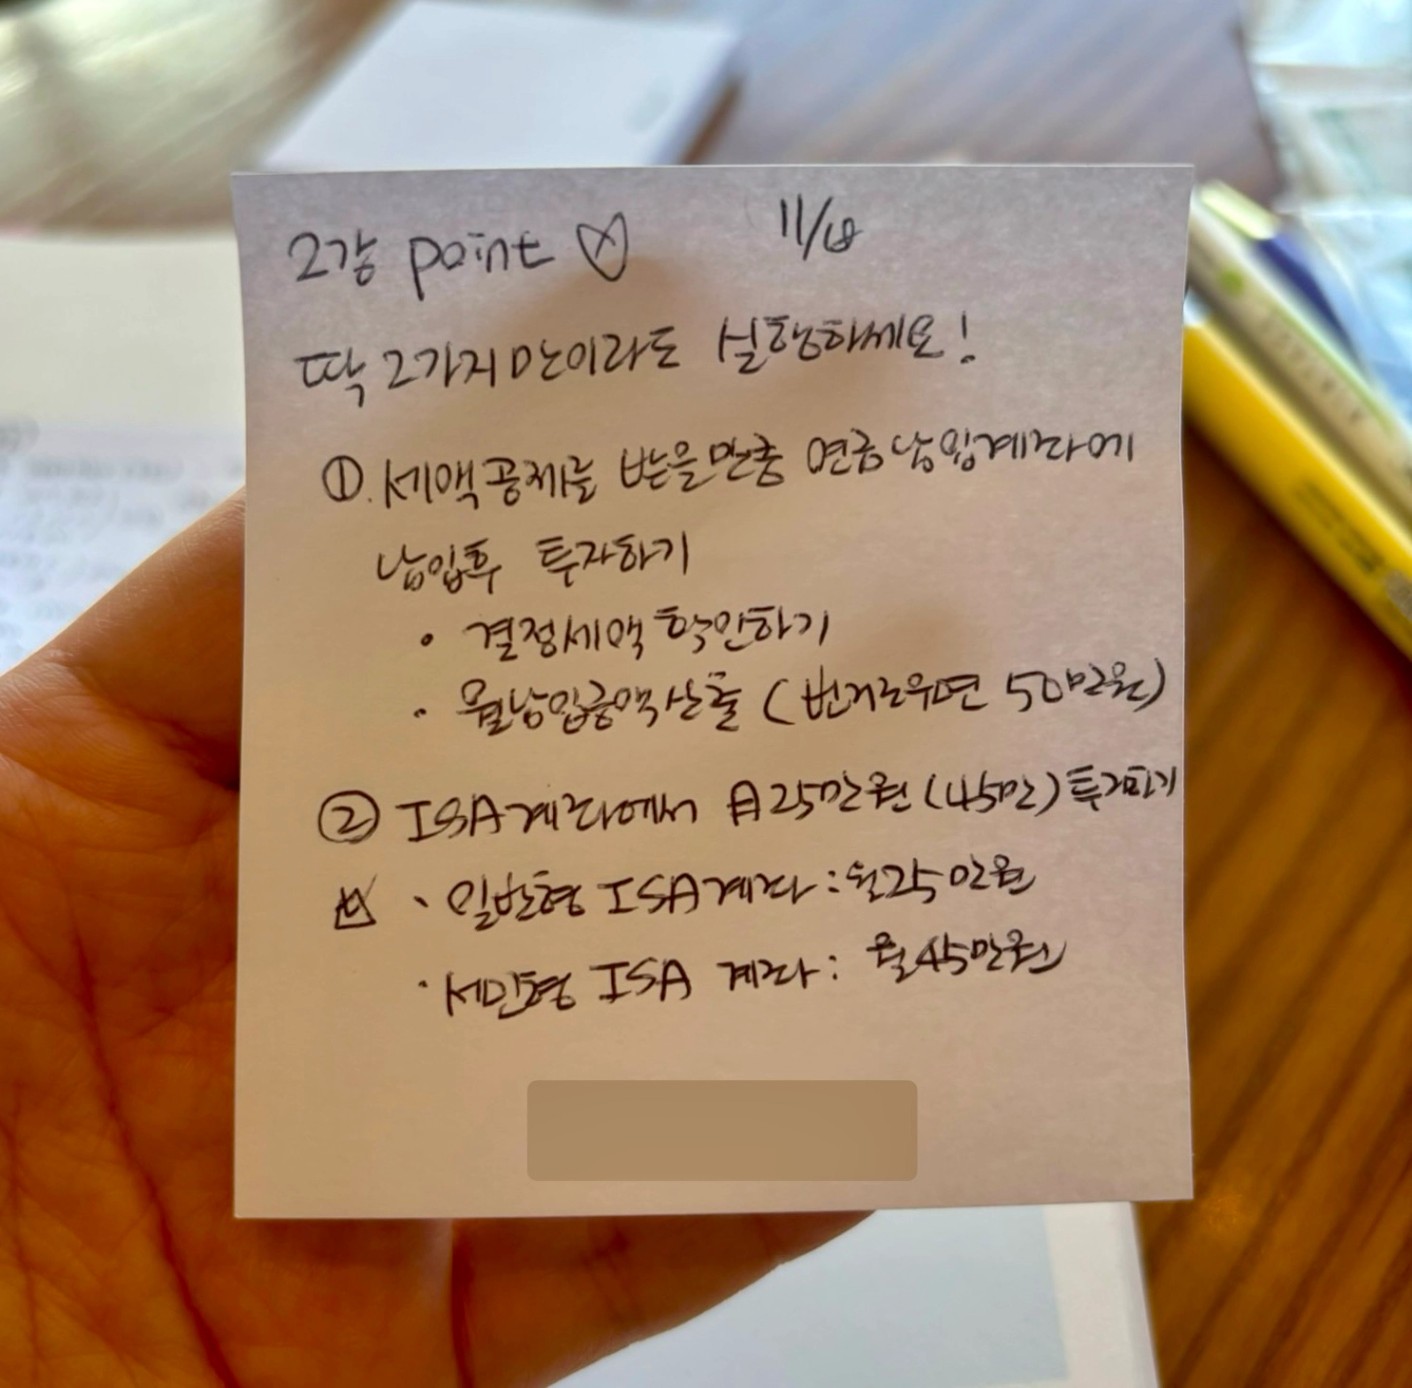 2강 point
딱 2가지만이라도 실행하세요!
①. 세액공제를 받을만큼 연금납입계좌에
납입후 투자하기
• 결정세액 확인하기
• 월납입금액산출 (번거로우면 50만원)
② ISA계좌에서 月25만원 (45만) 투자하기
• 일반형 ISA계좌 : 월25만원
• 서민형 ISA 계좌 : 월45만원